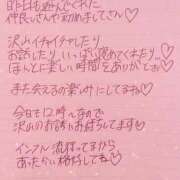 昨日も遊んでくれた
仲良しさんや初めましてさん♡
沢山イチャイチャしたり
お話したり いっぱい褒めてくれたり…
ほんとに楽しい時間をありがとぉ♡
また会えるの楽しみにしてます♡
今日も12時〜なので
沢山のお誘いお待ちしてます♡
インフル流行ってますから
あったかい格好してね♡